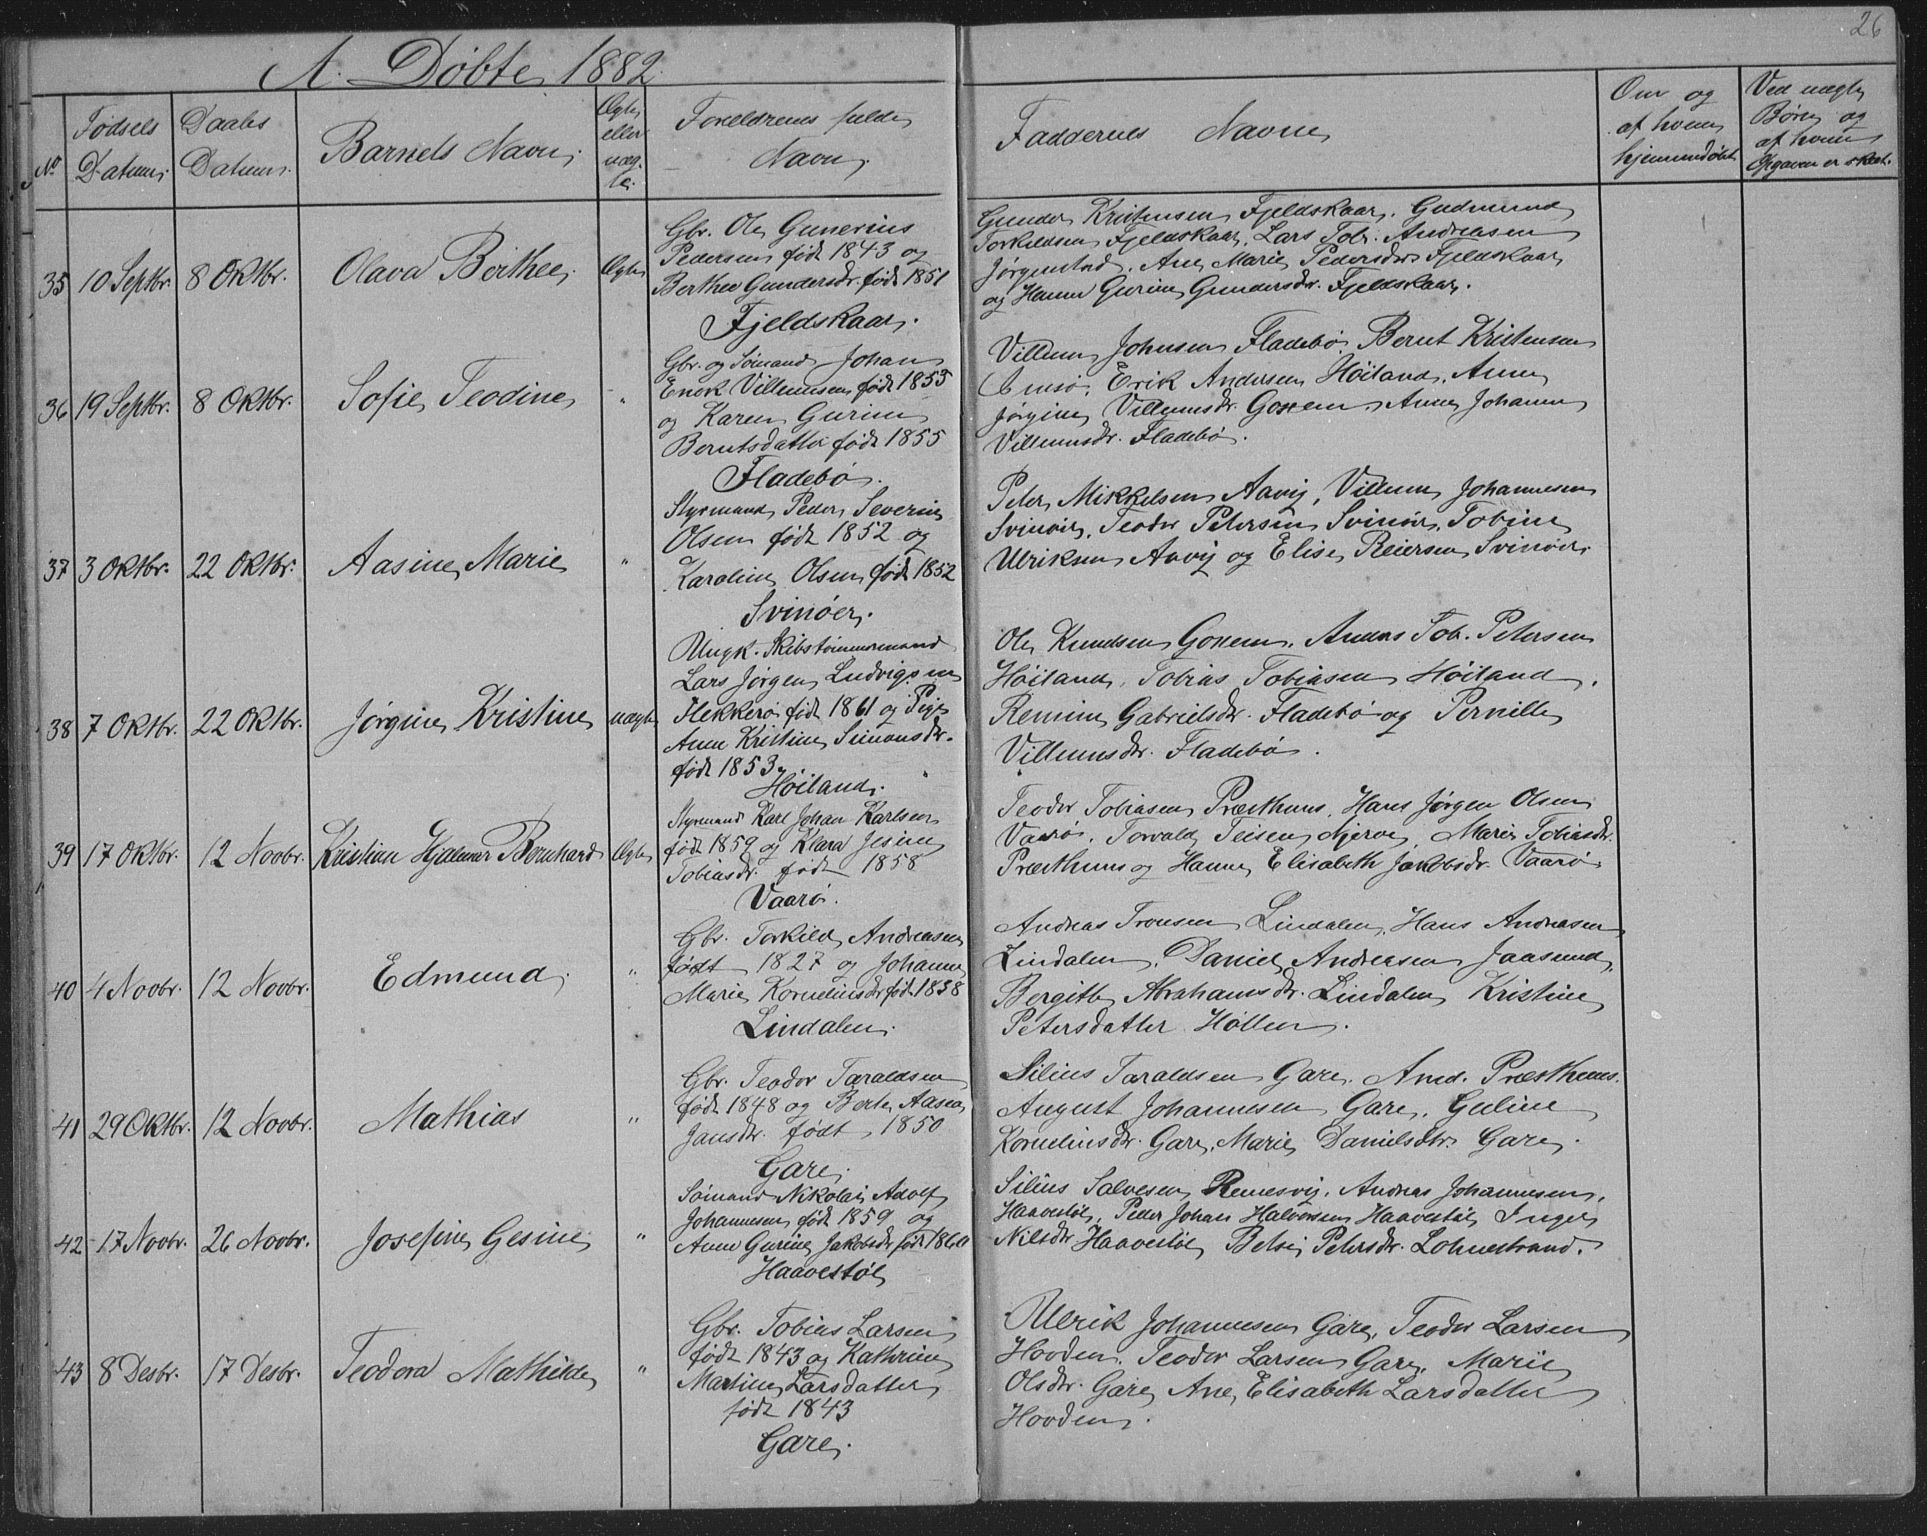 26
A. Døbte, 1882.
No
Fødsels Datum.
Daabs Datum.
Barnets Navn.
Ægte eller uægte.
Forældrenes fulde Navn.
Faddernes Navne
Om og af hvem hjemmedøbt
Ved uægte Børn og af hvem Opgaven er skeet.
35 10 Septbr. 8 Oktbr. Olava Berthee. Ægte
Gbr. Ole Gunerius
Pedersen født 1843 og
Berthee Gundersdr. født 1851
Fjeldskaar.
Gunder Kristensen Fjeldskaar. Gudmund
Torkildsen Fjeldskaar, Lars Tob. Andreasen
Jørgenstad. Ane Marie Pedersdr. Fjeldskaar
og Hanne Gurine Gundersdr. Fjeldskaar.
36 19 Septbr. 8 Oktbr. Sofie Teodine "
Gbr. og Sømand Johan
Enok Villumsen født 1855
og Karen Gurine
Berntsdatter født 1855
Fladebø.
Villum Johnsen Fladebø, Bernt Kristensen
Erik Andersen Høiland. Anne
Jørgine Villumsdr. Goxem. Anne Johanne
Villumsdr. Fladebø.
37 3 Oktbr. 22 Oktbr. Aasine Marie "
Styrmand Peder Severin
Olsen født 1852 og
Karoline Olsen født 1852
Svinøer.
Peter Mikkelsen Aavig, Villum Johannesen
Svinøer, Teodor Petersen Svinøer, Tobine
Ulriksen Aavig og Elise Reiersen Svinøer.
38 7 Oktbr. 22 Oktbr. Jørgine Kristine uægte
Ungk. Skibstømmermand
Lars Jørgen Ludvigsen
Flekkerø født 1861 og Pige
Anne Kristine Simonsdr.
født 1853.
Høiland.
Ole Knudsen Goxem. Anders Tob. Petersen
Høiland, Tobias Tobiasen Høiland.
Remine Gabrielsdr. Fladebø og Pernille
Villumsdr. Fladebø.
39 17 Oktbr. 12 Novbr. Kristian Hjalmar Bernhard Ægte
Styrmand Karl Johan Karlsen
født 1859 og Klara Jesine
Tobiasdr. født 1858
Vaarø.
Teodor Tobiasen Præsthuus, Hans Jørgen Olsen
Vaarø, Torvald Teisen Njerve, Marie Tobiasdr.
Præsthuus og Hanne Elisabeth Jakobsdr. Vaarø.
40 4 Novbr. 12 Novbr. Edmund. "
Gbr. Torkild Andreasen
født 1827 og Johanne
Marie Korneliusdr. født 1838
Lindalen.
Andreas Tronsen Lindalen, Hans Andreasen
Lindalen. Daniel Andreasen Jaasund,
Bergitte Abrahamsdr. Lindalen Kristine
Petersdatter Høllen.
41 29 Oktbr. 12 Novbr. Mathias "
Gbr. Teodor Taraldsen
født 1848 og Berte Aasea
Jansdr. født 1850
Gare.
Silius Taraldsen Gare. And. Præsthuus.
August Johannesen Gare, Guline
Korneliusdr. Gare, Marie Danielsdtr. Gare.
42 17 Novbr. 26 Novbr. Josefine Gesine "
Sømand Nikolai Adolf
Johannesen født 1859 og
Anne Gurine Jakobsdr. født 1860
Haavestøl
Silius Salvesen Remesvig. Andreas Johannesen,
Haavestøl, Peder Johan Halvorsen Haavestøl Inger
Nilsdtr Haavestøl Betsi Petersdr. Lohnestrand.
43 8 Desbr. 17 Desbr. Teodora Mathilde "
Gbr. Tobias Larsen
født 1843 og Kathrine
Martine Larsdatter
født 1843
Gare.
Ulrik Johannesen Gare, Teodor Larsen
Hovden. Teodor Larsen Gare. Marie
Olsdtr. Gare, Ane Elisabeth Larsdatter
Hovden.